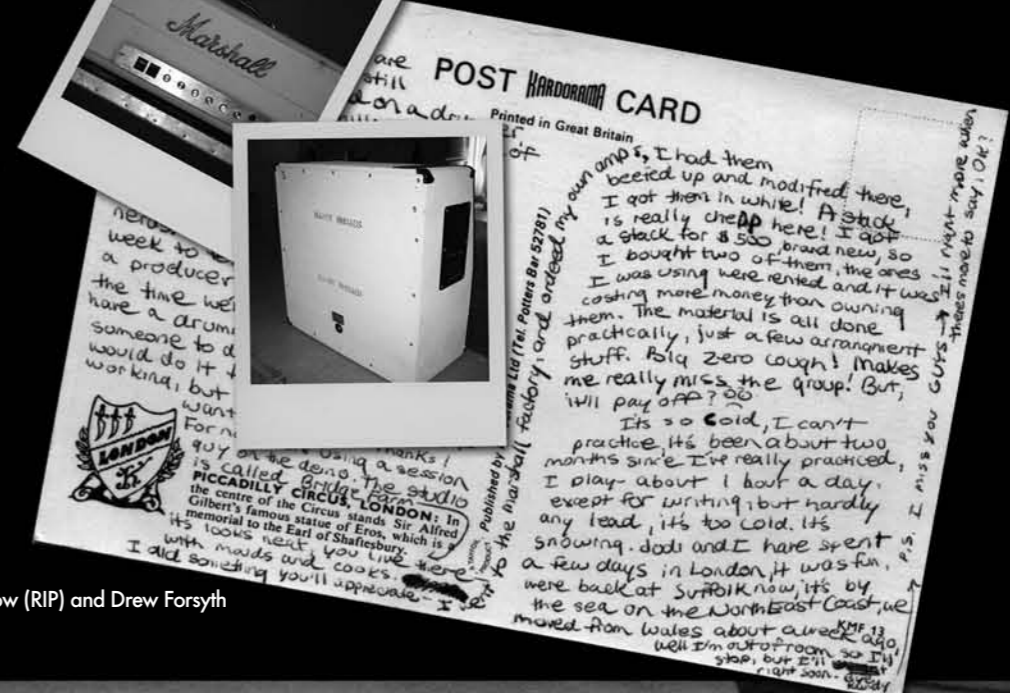 Marshall
POST KARDORAMA CARD
Printed in Great Britain
are
still
on a
of
week to
a producer
the time we
have a drum
someone to d
would do it
working, but
want
thanks!
For n
using a session
guy on the demo. The studio
is called Bridge Farm
LONDON
PICCADILLY CIRCUS, LONDON: In
the centre of the Circus stands Sir Alfred
Gilbert's famous statue of Eros, which is a
memorial to the Earl of Shaftesbury.
its looks neat, you live there
with maids and cooks.
I did something you'll appreciate - I
went to the Marshall factory, and ordered my own amps, I had them
Ltd (Tel. Potters Bar 52781)
Published by
beefed up and modifred there,
I got them in white! A stack
is really cheap here! I got
a stack for $500, brand new, so
I bought two of them, the ones
I was using were rented and it was
costing more money than owning
them. The material is all done
practically, just a few arrangment
stuff. Poly Zero cough! Makes
me really miss the group! But,
it'll pay off?
Its so cold, I can't
practice, it's been about two
months since I've really practiced,
I play about 1 hour a day.
except for writing, but hardly
any lead, it's too cold. Its
snowing. Jodi and I have spent
a few days in London, it was fun.
were back at Suffolk now, it's by
the sea on the NorthEast Coast, we
moved from Wales about a week ago,
KMF 13
well I'm out of room so I'll
stop, but I'll
right soon -
P.S. I MISS YOU GUYS → I'll right more when
theres more to say, OK?
ow (RIP) and Drew Forsyth